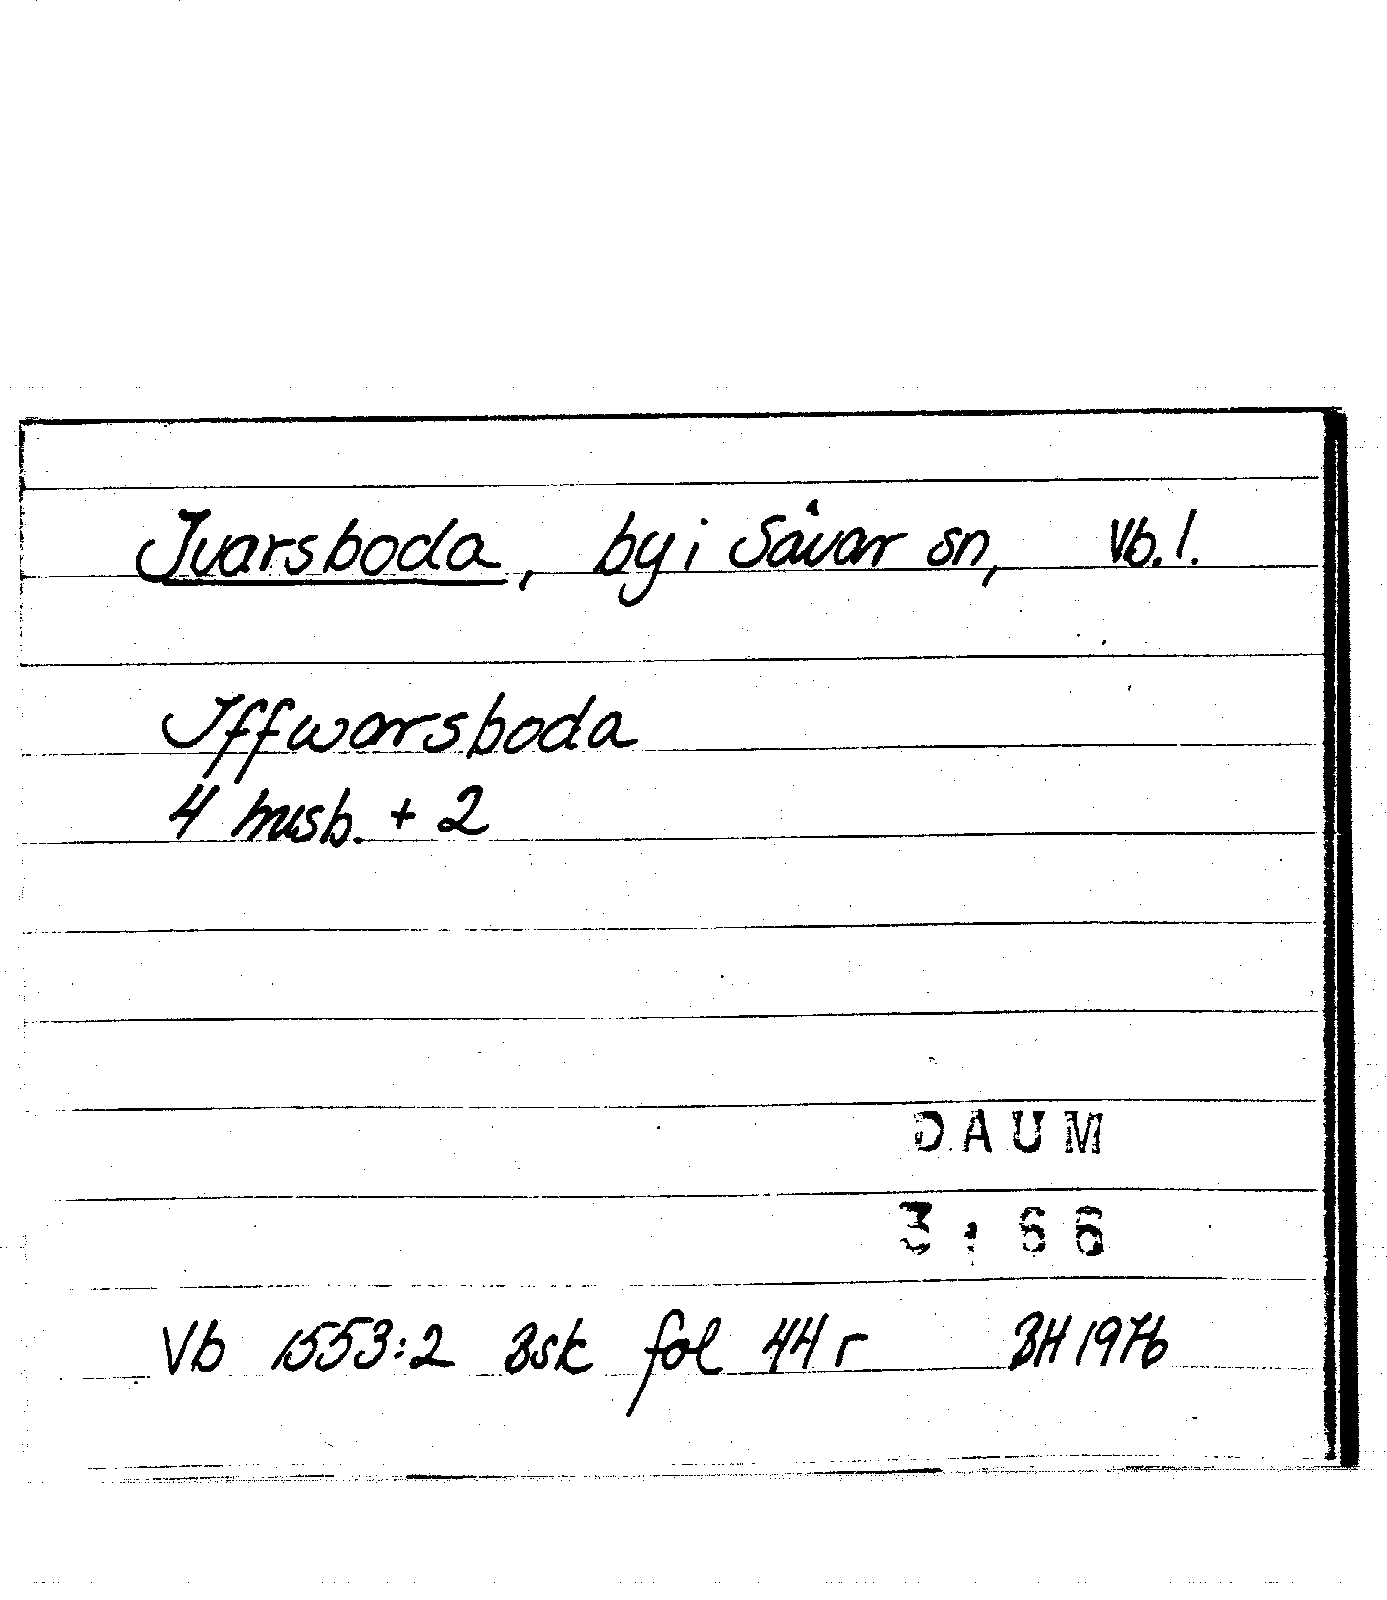 Ivarsboda, by i Sävar sn, Vb. l.
Iffwarsboda
4 husb. + 2
DAUM
3:66
Vb 1553:2 Bsk fol 44 r BH 1976